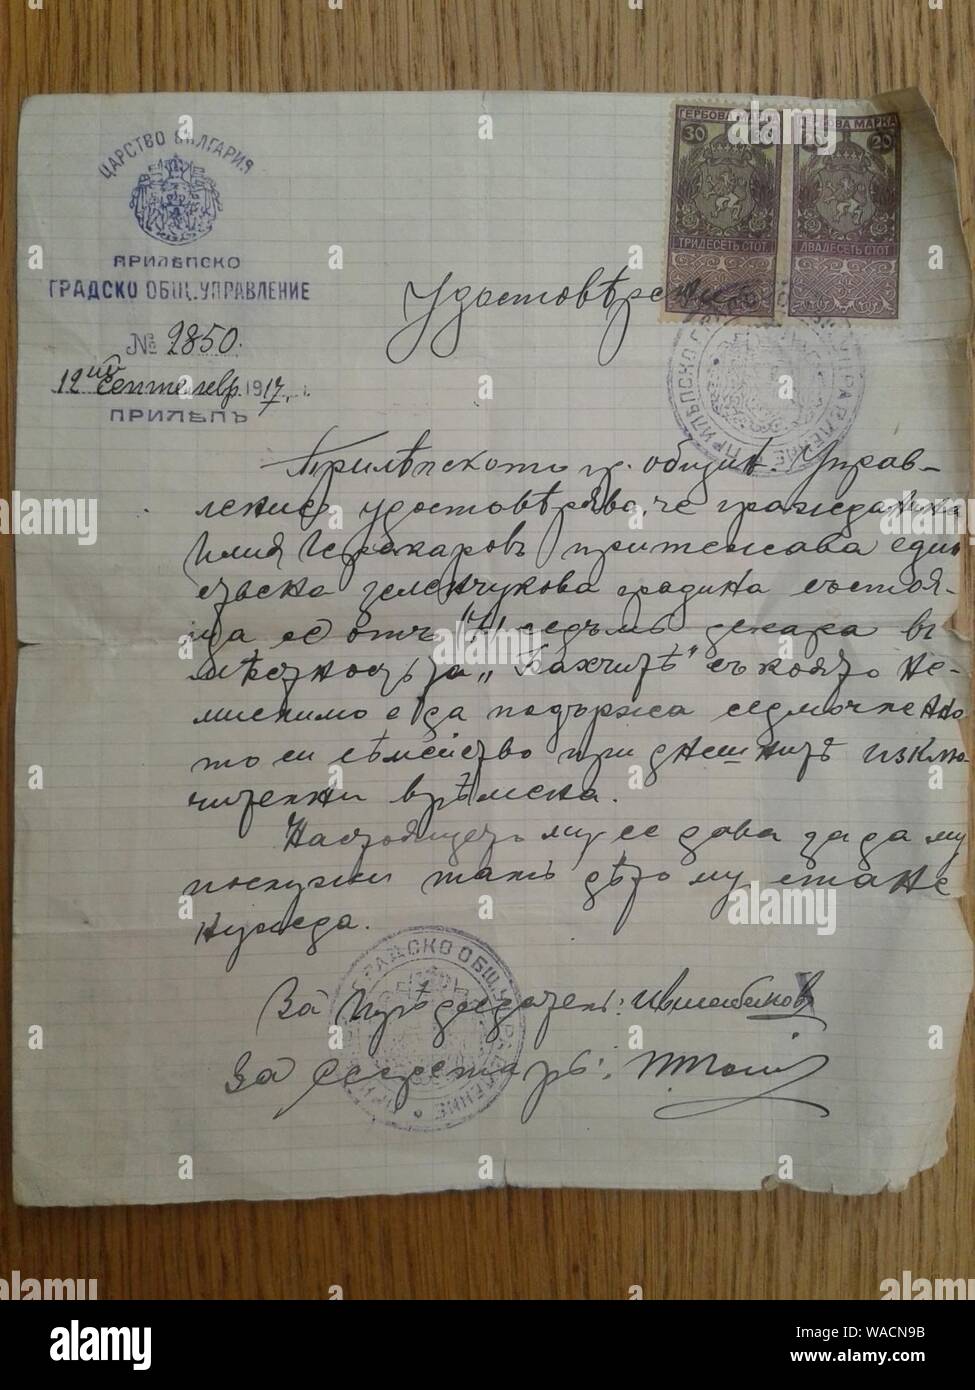 ЦАРСТВО БЪЛГАРИЯ
ПРИЛѢПСКО
ГРАДСКО ОБЩ. УПРАВЛЕНИЕ
№ 2850.
12ий Септемвр. 1917 г.
ПРИЛѢПЪ
ГЕРБОВА МАРКА
30
ТРИДЕСЕТЬ СТОТ.
ГЕРБОВА МАРКА
20 20
ДВАДЕСЕТЬ СТОТ.
Удостовѣрение
Прилѣпското гр. общин. Управ-
ление удостовѣрява, че гражданина
Илия притежава един-
ствена зеленчукова градина състоя-
ща се отъ /7/ седъмь декара въ
мѣстностьта „Бахчитѣ" съ която не-
мислимо е да подържа седмочленно-
то си сѣмейство при днешнитѣ изклю-
чителни врѣмена.
Настоящето му се дава за да му
послужи тамъ дѣто му стане
нужда.
За Прѣдседатель:
За Секретарь:
alamy
Image ID: WACN9B
www.alamy.com